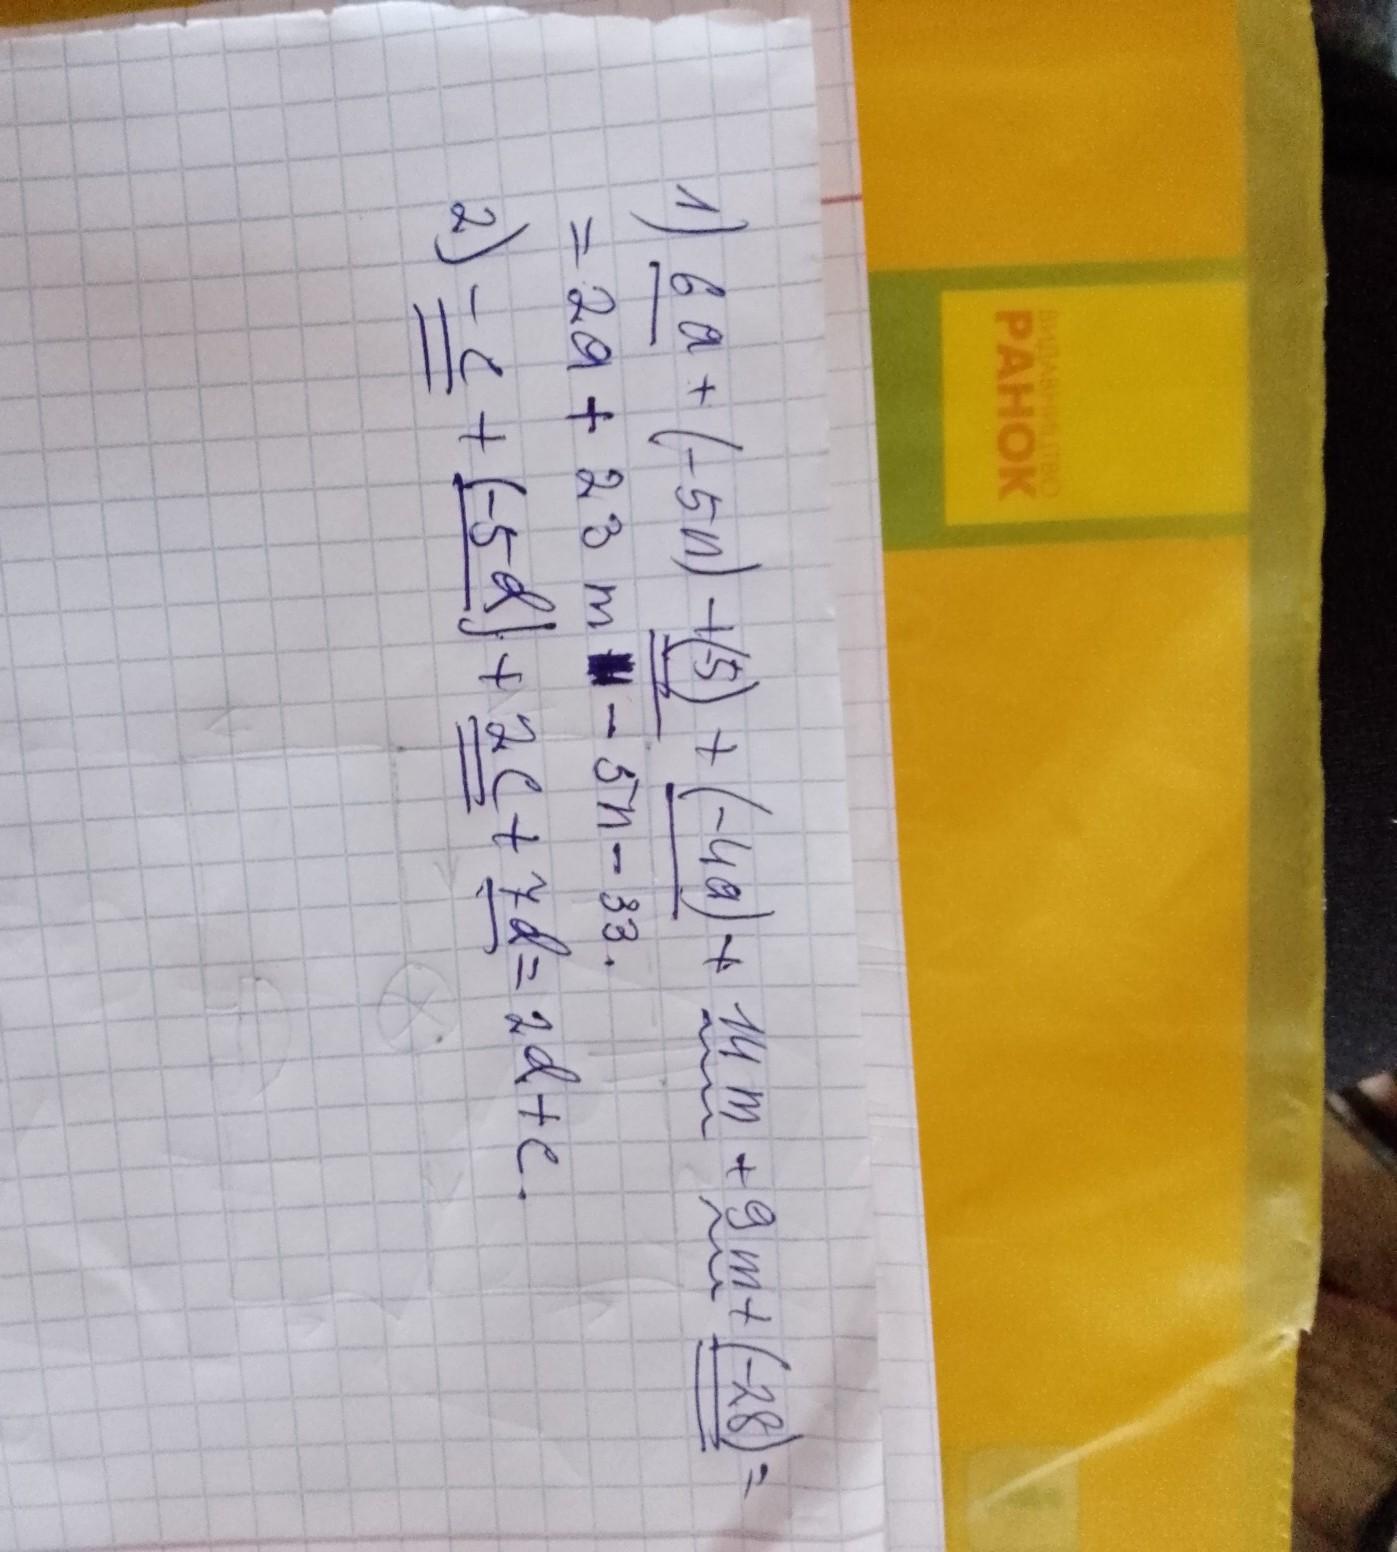 ВИДАВНИЦТВО
РАНОК
1) 6a + (-5n) + (-5) + (-4a) + 14m + 9m + (-28) =
= 2a + 23m - 5n - 33.
2) -c + (-5d) + 2c + 7d = 2d + c.